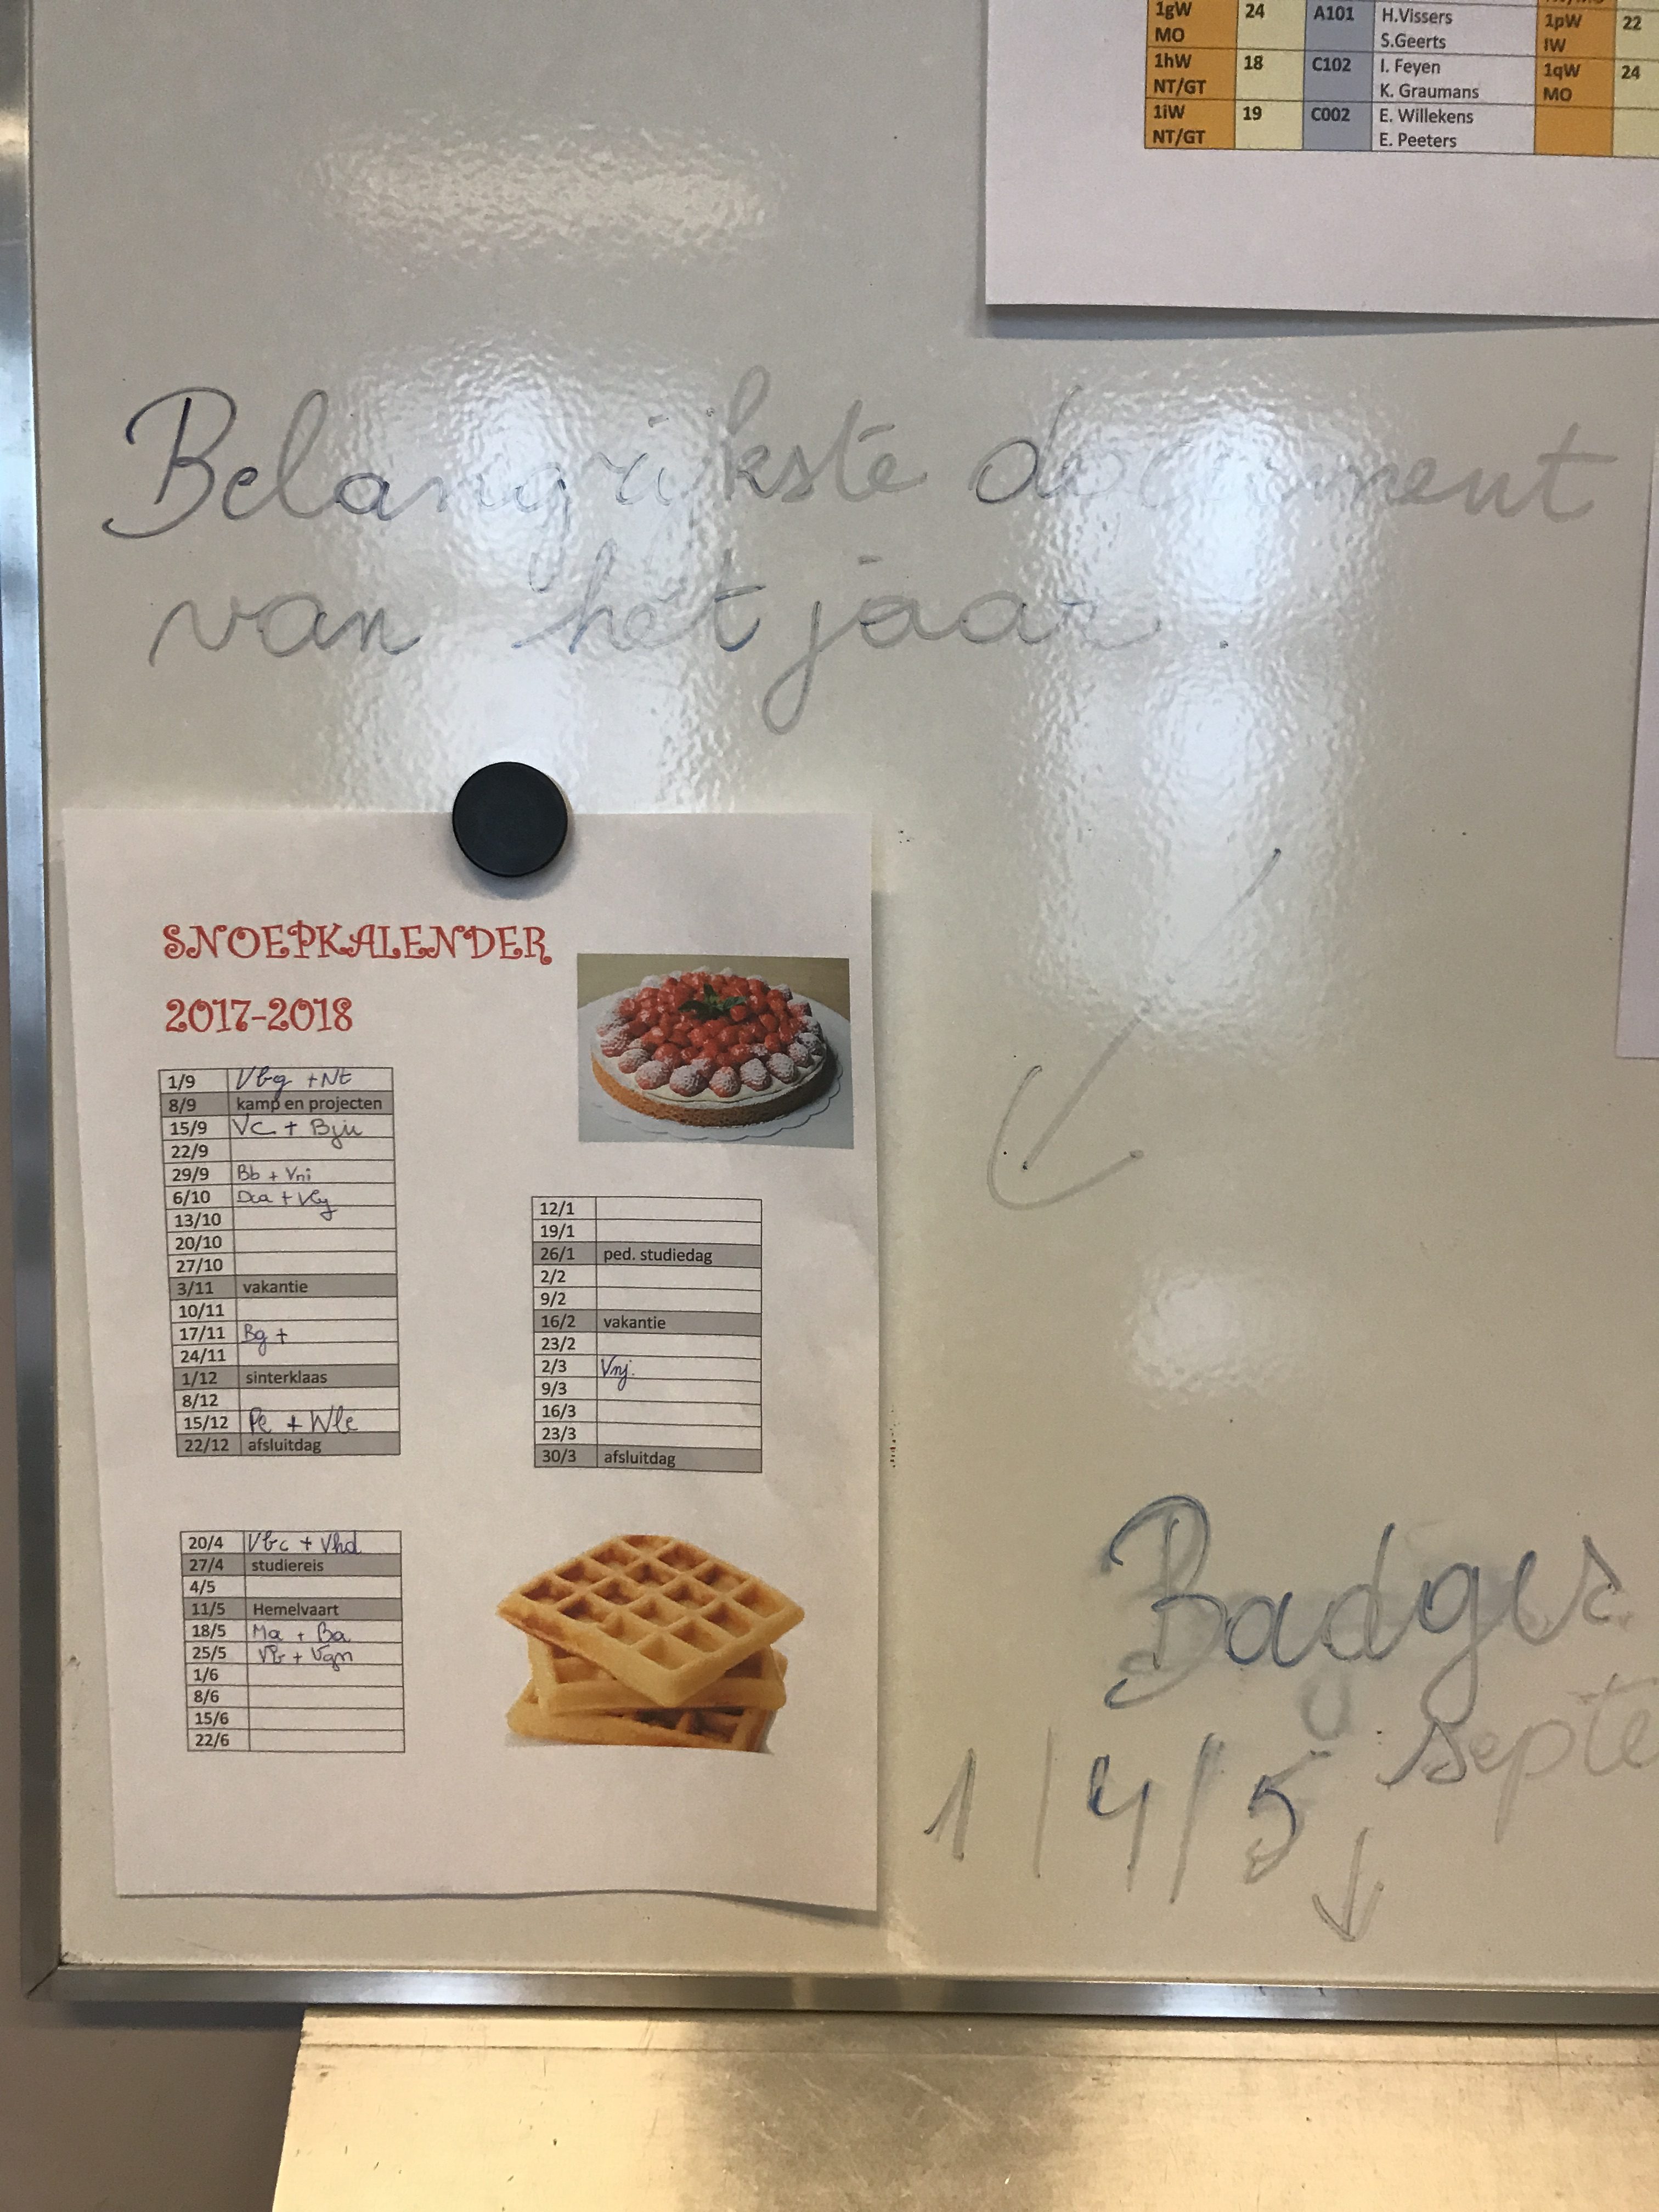 1gW 24 A101 H.Vissers 1pW 22
MO S.Geerts IW
1hW 18 C102 I. Feyen 1qW 24
NT/GT K. Graumans MO
1iW 19 C002 E. Willekens
NT/GT E. Peeters
Belangrijkste document
van het jaar.
SNOEPKALENDER
2017-2018
1/9 Vbg + Nt
8/9 kamp en projecten
15/9 Vc + Bju
22/9
29/9 Bb + Vni
6/10 Dca +
13/10
20/10
27/10
3/11 vakantie
10/11
17/11 Bg +
24/11
1/12 sinterklaas
8/12
15/12 Pe + Wle
22/12 afsluitdag
12/1
19/1
26/1 ped. studiedag
2/2
9/2
16/2 vakantie
23/2
2/3 Vnj.
9/3
16/3
23/3
30/3 afsluitdag
20/4 Vbc + Vhd
27/4 studiereis
4/5
11/5 Hemelvaart
18/5 Ma + Ba
25/5 + Vgn
1/6
8/6
15/6
22/6
Badges
1/4/5 septe